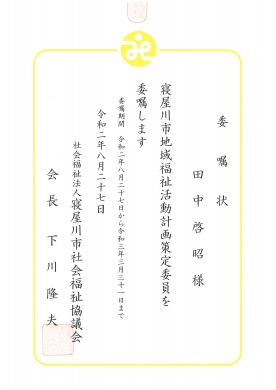 委嘱状
田中啓昭様
寝屋川市地域福祉活動計画策定委員を
委嘱します
委嘱期間 令和二年八月二十七日から令和三年三月三十一日まで
令和二年八月二十七日
社会福祉法人寝屋川市社会福祉協議会
会長 下川隆夫